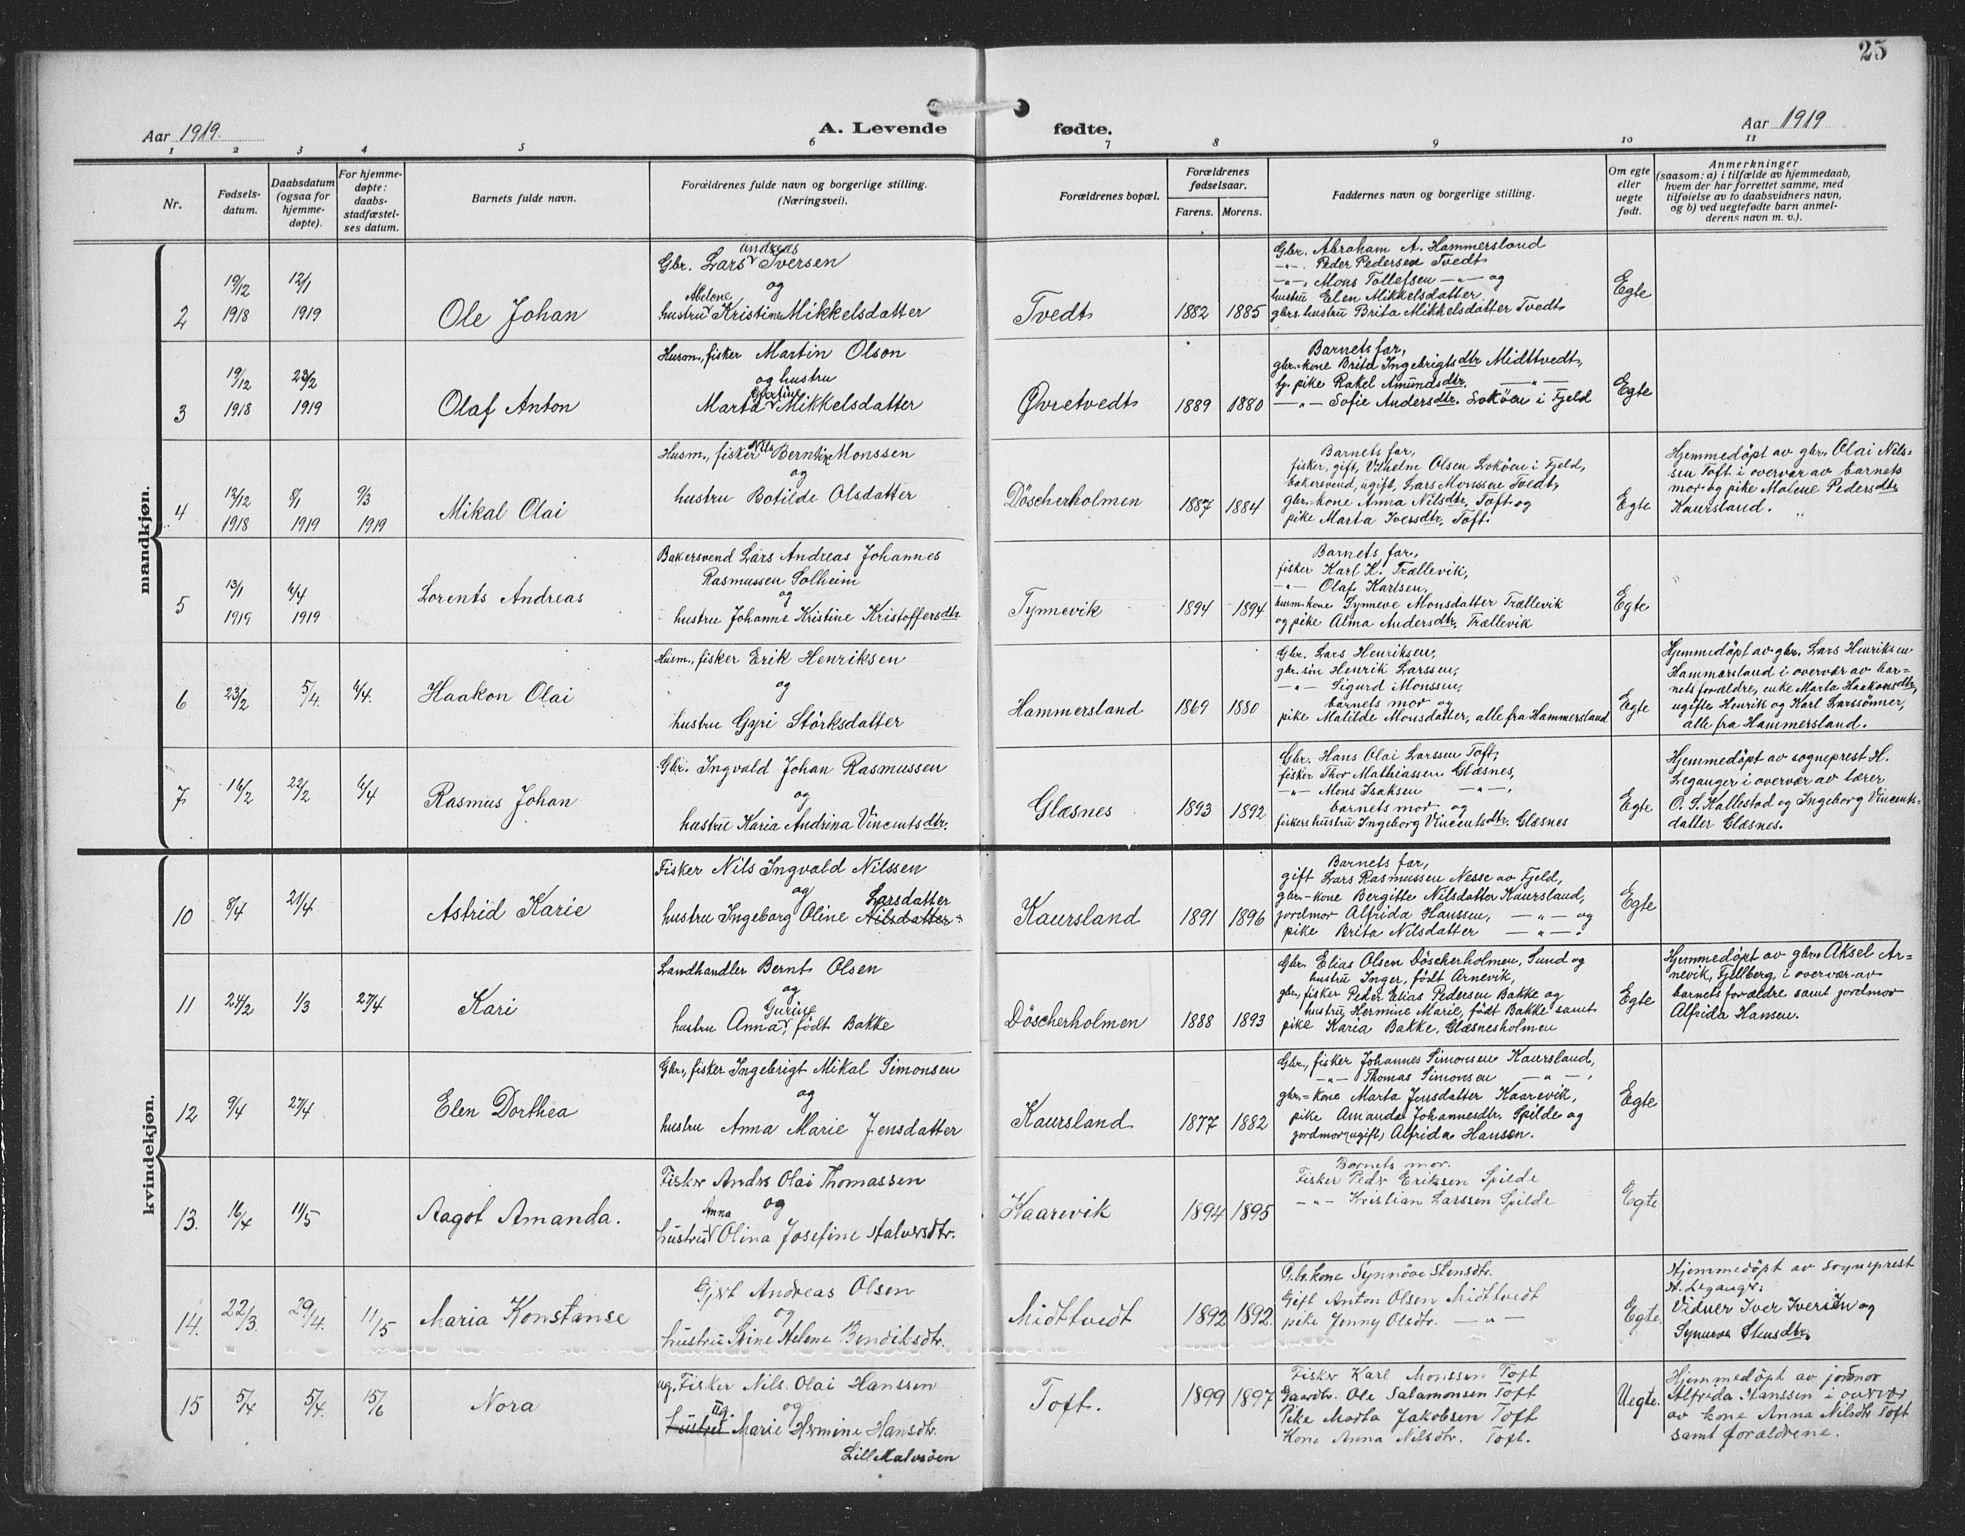 25
Aar 1919.
A. Levende fødte.
Aar 1919
1 2 3 4 5 6 7 8 9 10 11
Nr.
Fødsels-
datum.
Daabsdatum
(ogsaa for
hjemme-
døpte).
For hjemme-
døpte:
daabs-
stadfæstel-
ses datum.
Barnets fulde navn.
Forældrenes fulde navn og borgerlige stilling.
(Næringsvei).
Forældrenes bopæl.
Forældrenes
fødselsaar.
Farens. Morens.
Faddernes navn og borgerlige stilling.
Om egte
eller
uegte
født.
Anmerkninger
(saasom: a) i tilfælde av hjemmedaab,
hvem der har forrettet samme, med
tilføielse av to daabsvidners navn,
og b) ved uegtefødte barn anmel-
derens navn m. v.).
mandkjøn.
2
19/12
1918
12/1
1919
Ole Johan
Andreas
Gbr. Lars Iversen
og
Abelone
hustru Kristine Mikkelsdatter
Tvedt
1882 1885
Gbr. Abraham A. Hammersland
—"— Peder Pedersen Tvedt
—"— Mons Tollefsen —"— og
hustru Elen Mikkelsdatter
gbrs hustru Brita Mikkelsdatter Tvedt
Egte
3
19/12
1918
23/2
1919
Olaf Anton
Husm., fisker Martin Olson
og hustru
Marta Mikkelsdatter
Øvretvedt
1889 1880
Barnets far,
gbr.-kone Brita Ingebrigtsdtr Midttvedt,
pike Rakel Amundsdtr. —"—
—"— Sofie Andersdtr. Lokøen i Fjeld
Egte
4
12/12
1918
8/1
1919
9/3
1919
Mikal Olai
Nils
Husm., fisker Berntin Monssen
og
hustru Botilde Olsdatter
Döscherholmen
1887 1884
Barnets far,
fisker, gift, Vilhelm Olsen Lokøen i Fjeld,
bakersvend, ugift, Lars Monssen Tvedt,
gbr.-kone Anna Nilsdtr, Toft og
pike Marta Iversdtr, Toft.
Egte
Hjemmedöpt av gbr. Olai Nils-
sen Toft i overvær av barnets
mor og pike Malene Pedersdtr
Kaursland.
5
13/1
1919
6/4
1919
Lorents Andreas
Bakersvend Lars Andreas Johannes
Rasmussen Solheim
og
hustru Johanne Kristine Kristoffersdtr
Tynnevik
1894 1894
Barnets far,
fisker Karl K. Trællevik,
—"— Olaf Karlsen,
husm.kone Synneve Monsdatter Trællevik
og pike Alma Andersdtr, Trællevik
Egte
6
23/2
5/4.
6/4.
Haakon Olai
Husm., fisker Erik Henriksen
og
hustru Gyri Störksdatter
Hammersland
1869 1880
Gbr. Lars Henriksen,
gbr. søn Henrik Larssen,
—"— Sigurd Monssen,
barnets mor og
pike Matilde Monsdatter, alle fra Hammersland
Egte
Hjemmedöpt av gbr. Lars Henriksen
Hammersland i overvær av bar-
nets forældre, enke Marta Haakonsdtr,
ugifte Henrik og Karl Larssønner,
alle fra Hammersland.
7
16/2
22/2
6/4
Rasmus Johan
Gbr. Ingvald Johan Rasmussen
og
hustru Karia Andrina Vincentsdtr.
Glæsnes
1893 1892
Gbr. Hans Olai Larssen Toft,
fisker Thor Mathiassen Glæsnes,
—"— Mons Isaksen —"—,
barnets mor og
fiskers hustru Ingeborg Vincentsdtr. Glæsnes
Egte
Hjemmedöpt av sogneprest H.
Leganger i overvær av lærer
O. S. Kallestad og Ingeborg Vincents-
datter Glæsnes.
kvindekjøn.
10
8/4
21/4
Astrid Karie
Fisker Nils Ingvald Nilssen
og
Larsdatter
hustru Ingeborg Oline Nilsdatter
Kaursland
1891 1896
Barnets far,
gift Lars Rasmussen Nesse av Fjeld,
gbr.-kone Bergitte Nilsdatter Kaursland,
jordmor Alfrida Hanssen, —"— og
pike Brita Nilsdatter —"—.
Egte
11
24/2
1/3
27/4
Kari
Landhandler Bernt Olsen
og
Gurine
hustru Anna, født Bakke
Döscherholmen
1888 1893
Gbr. Elias Olsen Döscherholmen, Sund og
hustru Inger, født Arnevik,
gbr., fisker Peder Elias Pedersen Bakke og
hustru Hermine Marie, født Bakke samt
pike Karia Bakke, Glæsnesholmen
Egte
Hjemmedöpt av gbr. Aksel Ar-
nevik, Fjellberg, i overvær av
barnets forældre samt jordmor
Alfrida Hansen.
12
9/4
27/4
Elen Dorthea
Gbr., fisker Ingebrigt Mikal Simonsen
og
hustru Anna Marie Jensdatter
Kaursland
1877 1882
Gbr., fisker Johannes Simonsen Kaursland,
—"— Thomas Simonsen —"—,
gbr.-kone Marta Jensdatter Kaarevik,
pike Amanda Johannesdtr. Spilde og
jordmor (ugift) Alfrida Hansen.
Egte
13.
16/4
11/5
Aagot Amanda.
Fisker Andrs Olai Thomassen
og
Anna
hustru Olina Josefine Halvorsdtr.
Kaarevik
1894 1895
Barnets mor.
Fisker Pedr Eriksen Spilde
—"— Kristian Larssen Spilde
Egte
14.
22/3.
29/4.
11/5
Maria Konstanse
Gjert Andreas Olsen
og
hustru Stine Helene Bendiksdtr.
Midttvedt
1892 1892
Gbr. kone Synnöve Stensdtr.
Gift Anton Olsen Midttvedt
pike Jenny Olsdtr. —"—
Egte.
Hjemmedöpt av sogneprest
H. Legangr.
Vidner Iver Iversen og
Synneve Stensdtr.
15
5/4
5/4.
15/6
Nora
ug. Fisker Nils Olai Hanssen
og
ug.
hustru Marie Hermine Hansdtr.
Lille Kalvsöen
Toft.
1899 1897
Fisker Karl Monssen Toft
Gaardbr. Ole Salamonsen Toft
Pike Marta Jakobsen Toft
Kone Anna Nilsdtr. Toft.
Uegte.
Hjemmedöpt av jordmor
Alfrida Hanssen i overvær
av kone Anna Nilsdtr Toft
samt forældrene.